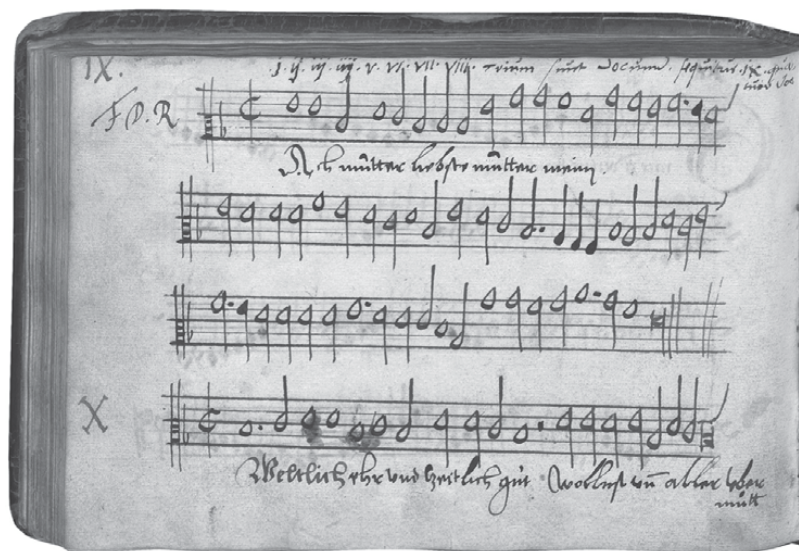 IX. I. ij. iij. iiij. v. vi. vii. viii. trium sunt vocum. sequitur .ix.
F D. R
Ach mutter liebste mutter mein
X
Weltlich ehr und zeitlich gut wollust un aller uber
mutt